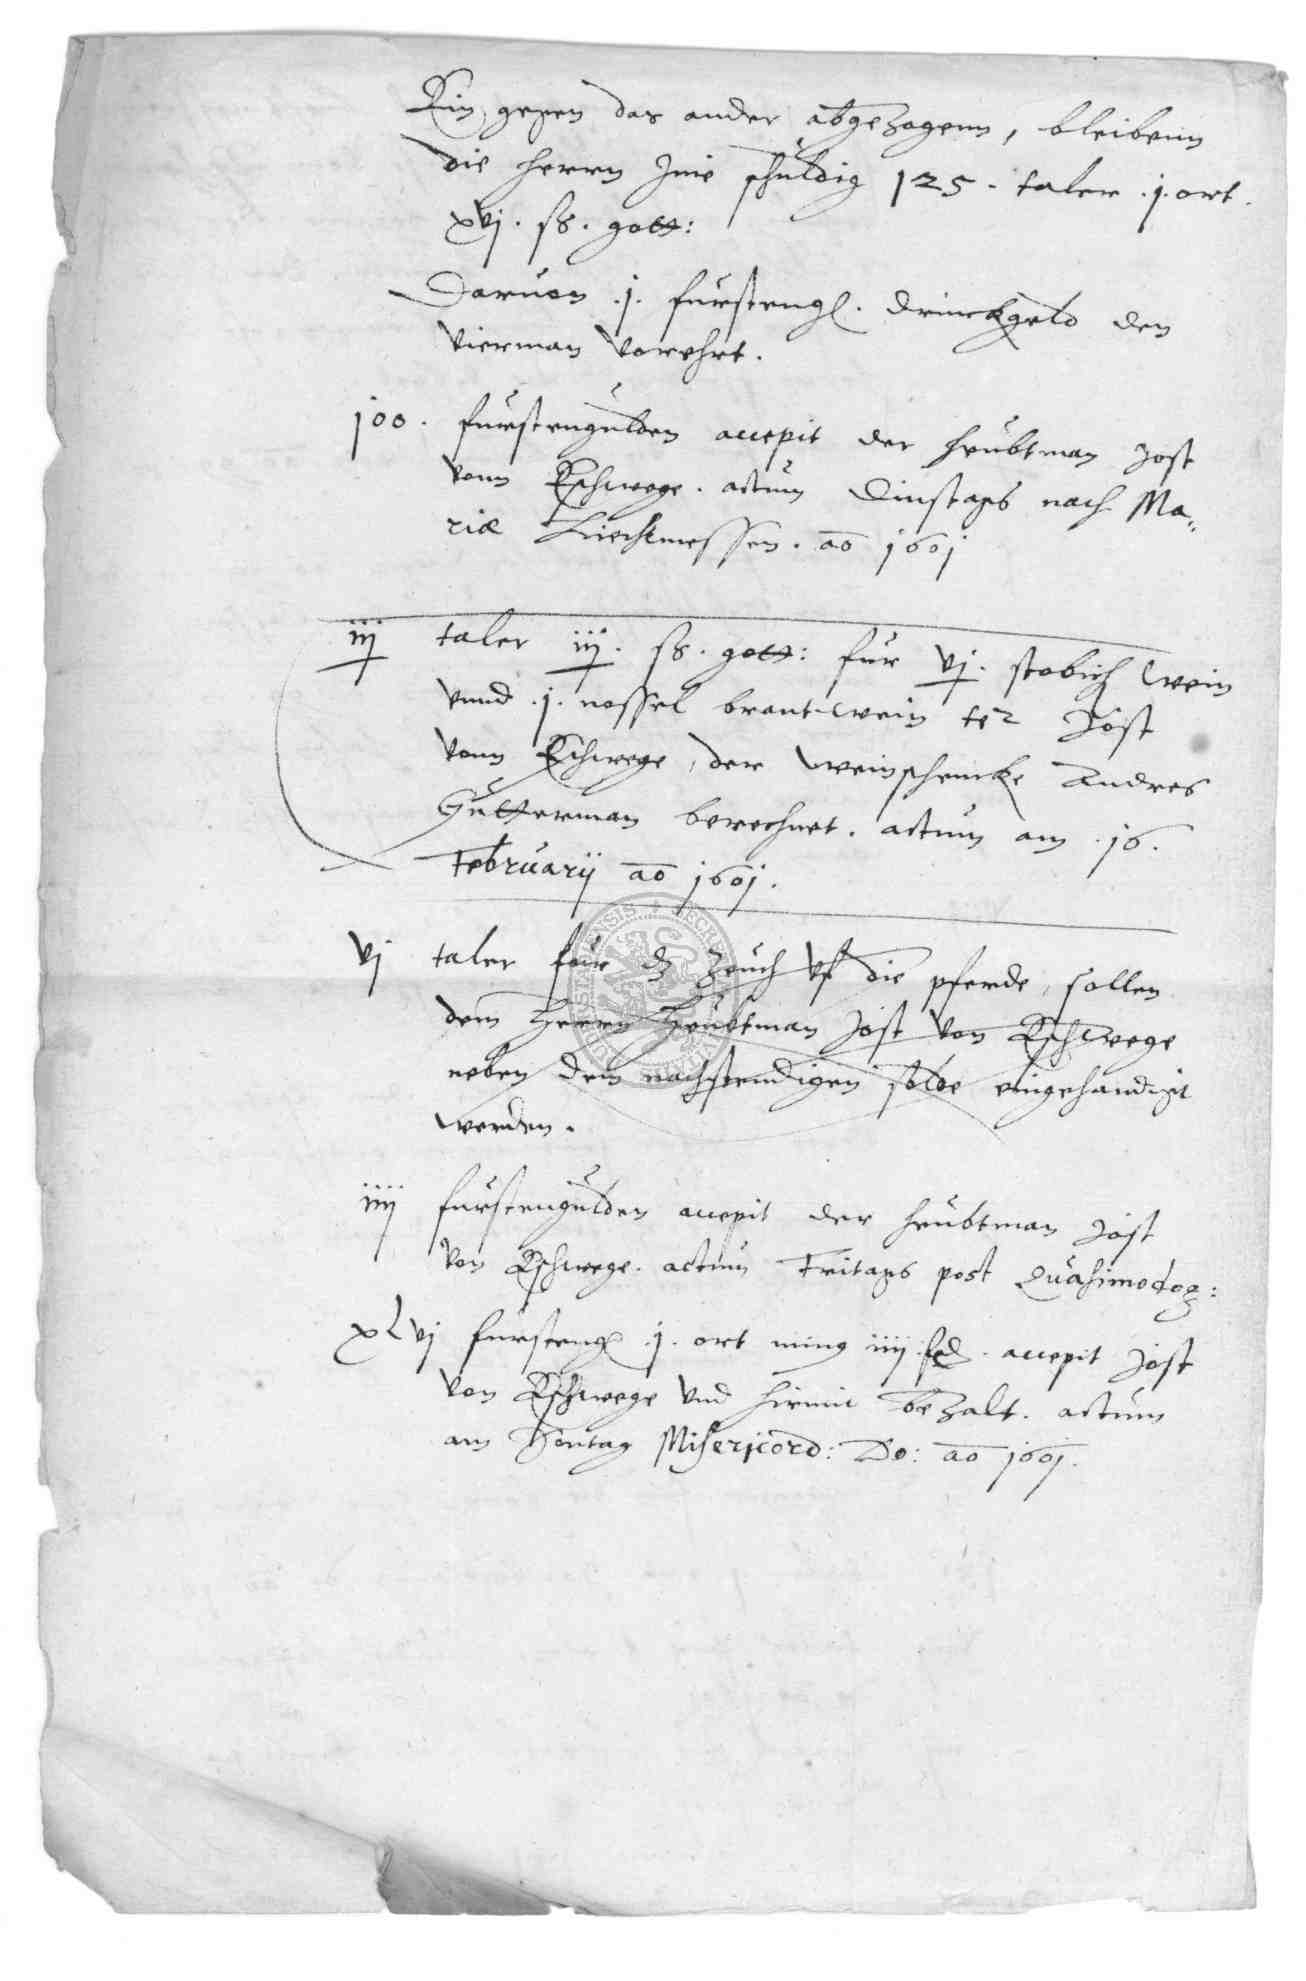 Ein gegen das ander abgezogenn, bleibenn
die herrn Ime schuldig 125. taler .j. ort.
xvj. ß. gott:
Daruon .j. furstengl. drinckgelt den
vierman vorehrt.
j00. furstengulden accepit der heubtman Jost
vonn Eschwege. actum Dinstags nach Ma=
riæ Liechtmessen. ao 1601
iij taler iij. ß. gott: fur vj. stobich wein
vnnd .j. nossel brantwein Jost
vonn Eschwege, der weinschencke Andres
Gutterman berechnet. actum am .16.
Februarij ao 1601.
vj taler fur dz zeuch vf die pferde, sollen
dem Herrn Heubtman Jost von Eschwege
neben dem nachstendigen solde eingehandigt
werden.
iiij furstengulden accepit der heubtman Jost
von Eschwege. actum Fritags post Quasimodog:
xLvj furstengl .j. ort ming iiij accepit Jost
von Eschwege vnd hirmit bezalt. actum
am Sontag Misericord: Do: ao 1601.